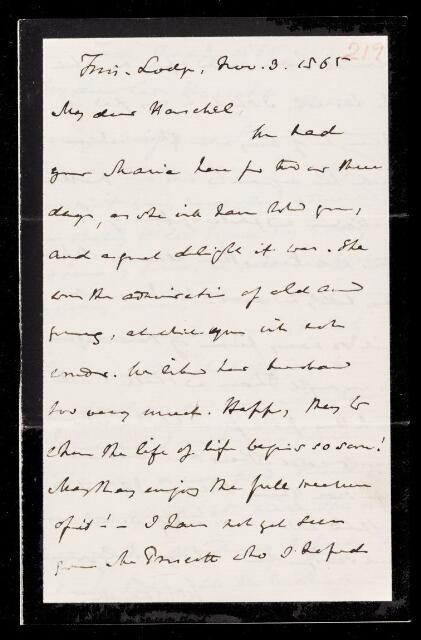 219
Trin. Lodge, Nov. 3. 1865
My dear Herschel,
We had
your Maria here for two or three
days, as she will have told you,
and a great delight it was. She
won the admiration of old and
young, at which you will not
wonder. We liked her husband
too very much. Happy they to
whom the life of life begins so soon!
May they enjoy the full measure
of it! – I have not yet seen
your Mr who I